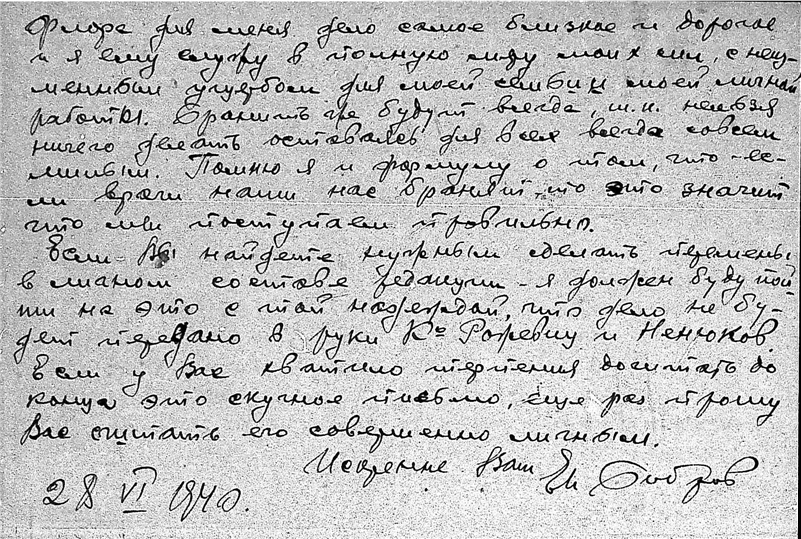 Флора для меня дело самое близкое и дорогое
и я ему служу в полную меру моих сил, с неиз-
менным ущербом для моей семьи и моей личной
работы. Бранить же будут всегда, т.к. нельзя
ничего делать оставаясь для всех всегда совсем
милым. Помню я и формулу о том, что „ес-
ли враги наши нас бранят, то это значит
что мы поступаем правильно.
Если Вы найдете нужным сделать перемены
в личном составе редакции - я должен буду пой-
ти на это с той надеждой, что дело не бу-
дет передано в руки Кº Рожевиц и Ненюков.
Если у Вас хватило терпения досчитать до
конца это скучное письмо, еще раз прошу
Вас считать его совершенно личным.
Искренне Ваш Ев Бобров
28 VI 1940.